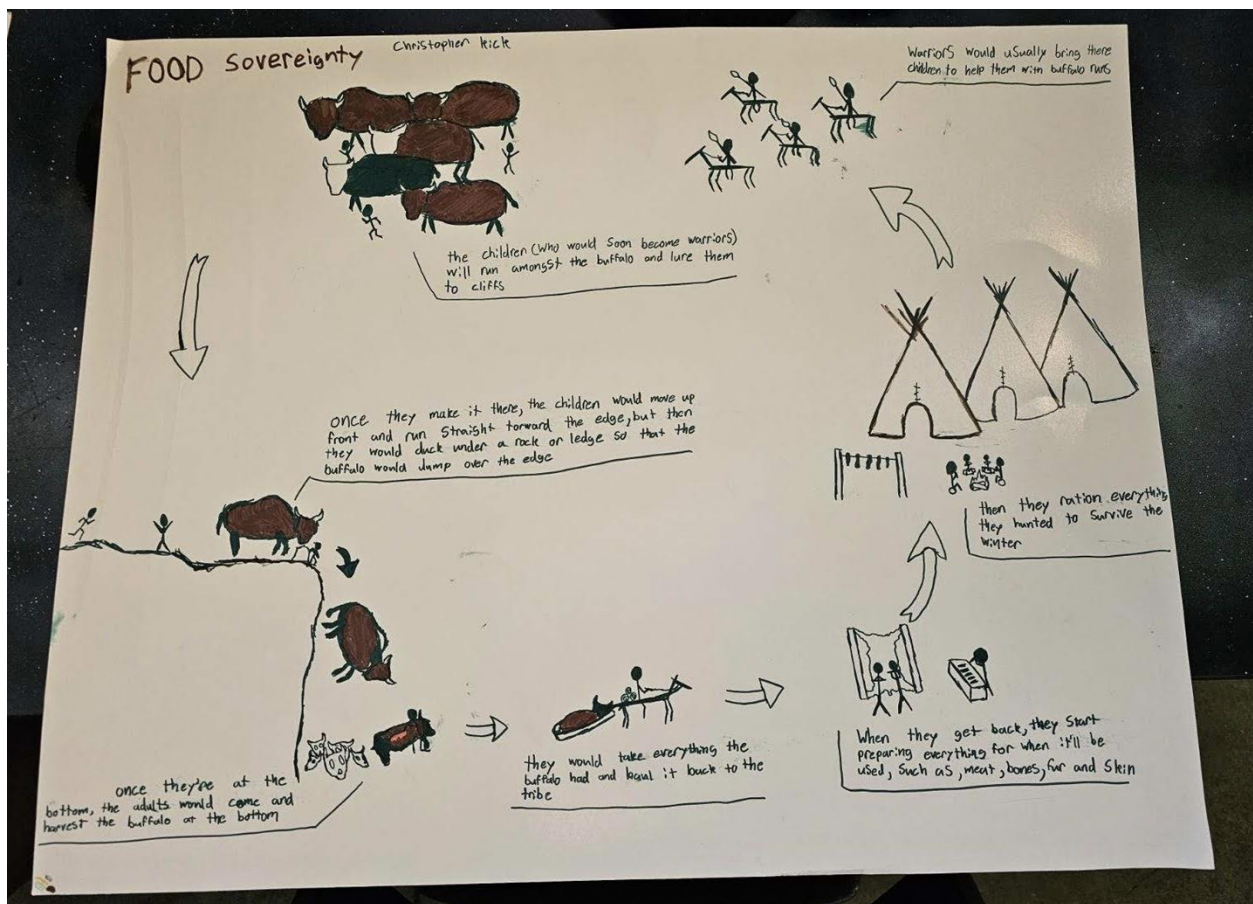 FOOD Sovereignty
Christopher kick
Warriors would usually bring there
children to help them with buffalo runs
the children (who would soon become warriors)
will run amongst the buffalo and lure them
to cliffs
once they make it there, the children would move up
front and run straight torward the edge, but then
they would duck under a rock or ledge so that the
buffalo would jump over the edge
once they're at the
bottom, the adults would come and
harvest the buffalo at the bottom
they would take everything the
buffalo had and haul it back to the
tribe
When they get back, they start
preparing everything for when it'll be
used, such as, meat, bones, fur and skin
then they ration everything
they hunted to survive the
winter